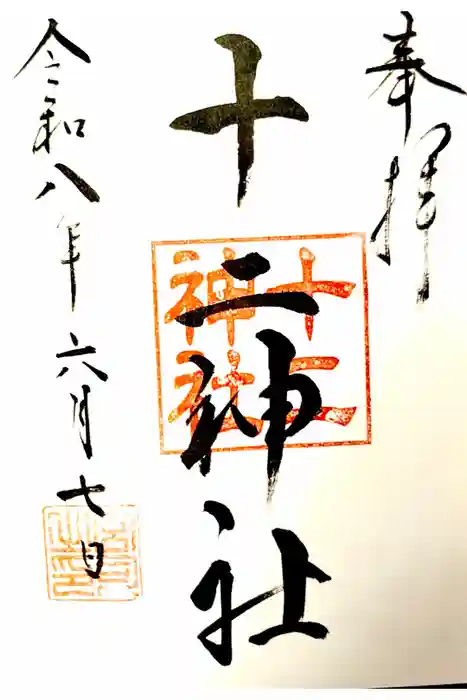 奉拝
十二神社
十二
神社
令和八年六月七日